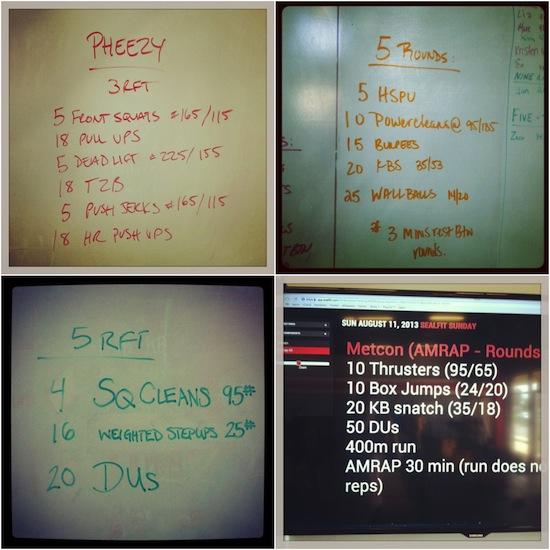 PHEEZY
3 RFT
5 FRONT SQUATS #165/115
18 PULL UPS
5 DEADLIFT #225/155
18 T2B
5 PUSH JERKS #165/115
18 HR PUSH UPS
5 ROUNDS:
5 HSPU
10 Powercleans@ 95/135
15 BURPEES
20 KBS 35/53
25 WALLBALLS 14/20
* 3 mins rest Btw
rounds.
NINE
FIVE -
5 RFT
4 SQ CLEANS 95#
16 WEIGHTED STEPUPS 25#
20 DUs
SUN AUGUST 11, 2013 SEALFIT SUNDAY
Metcon (AMRAP - Rounds
10 Thrusters (95/65)
10 Box Jumps (24/20)
20 KB snatch (35/18)
50 DUs
400m run
AMRAP 30 min (run does n
reps)
SAMSUNG